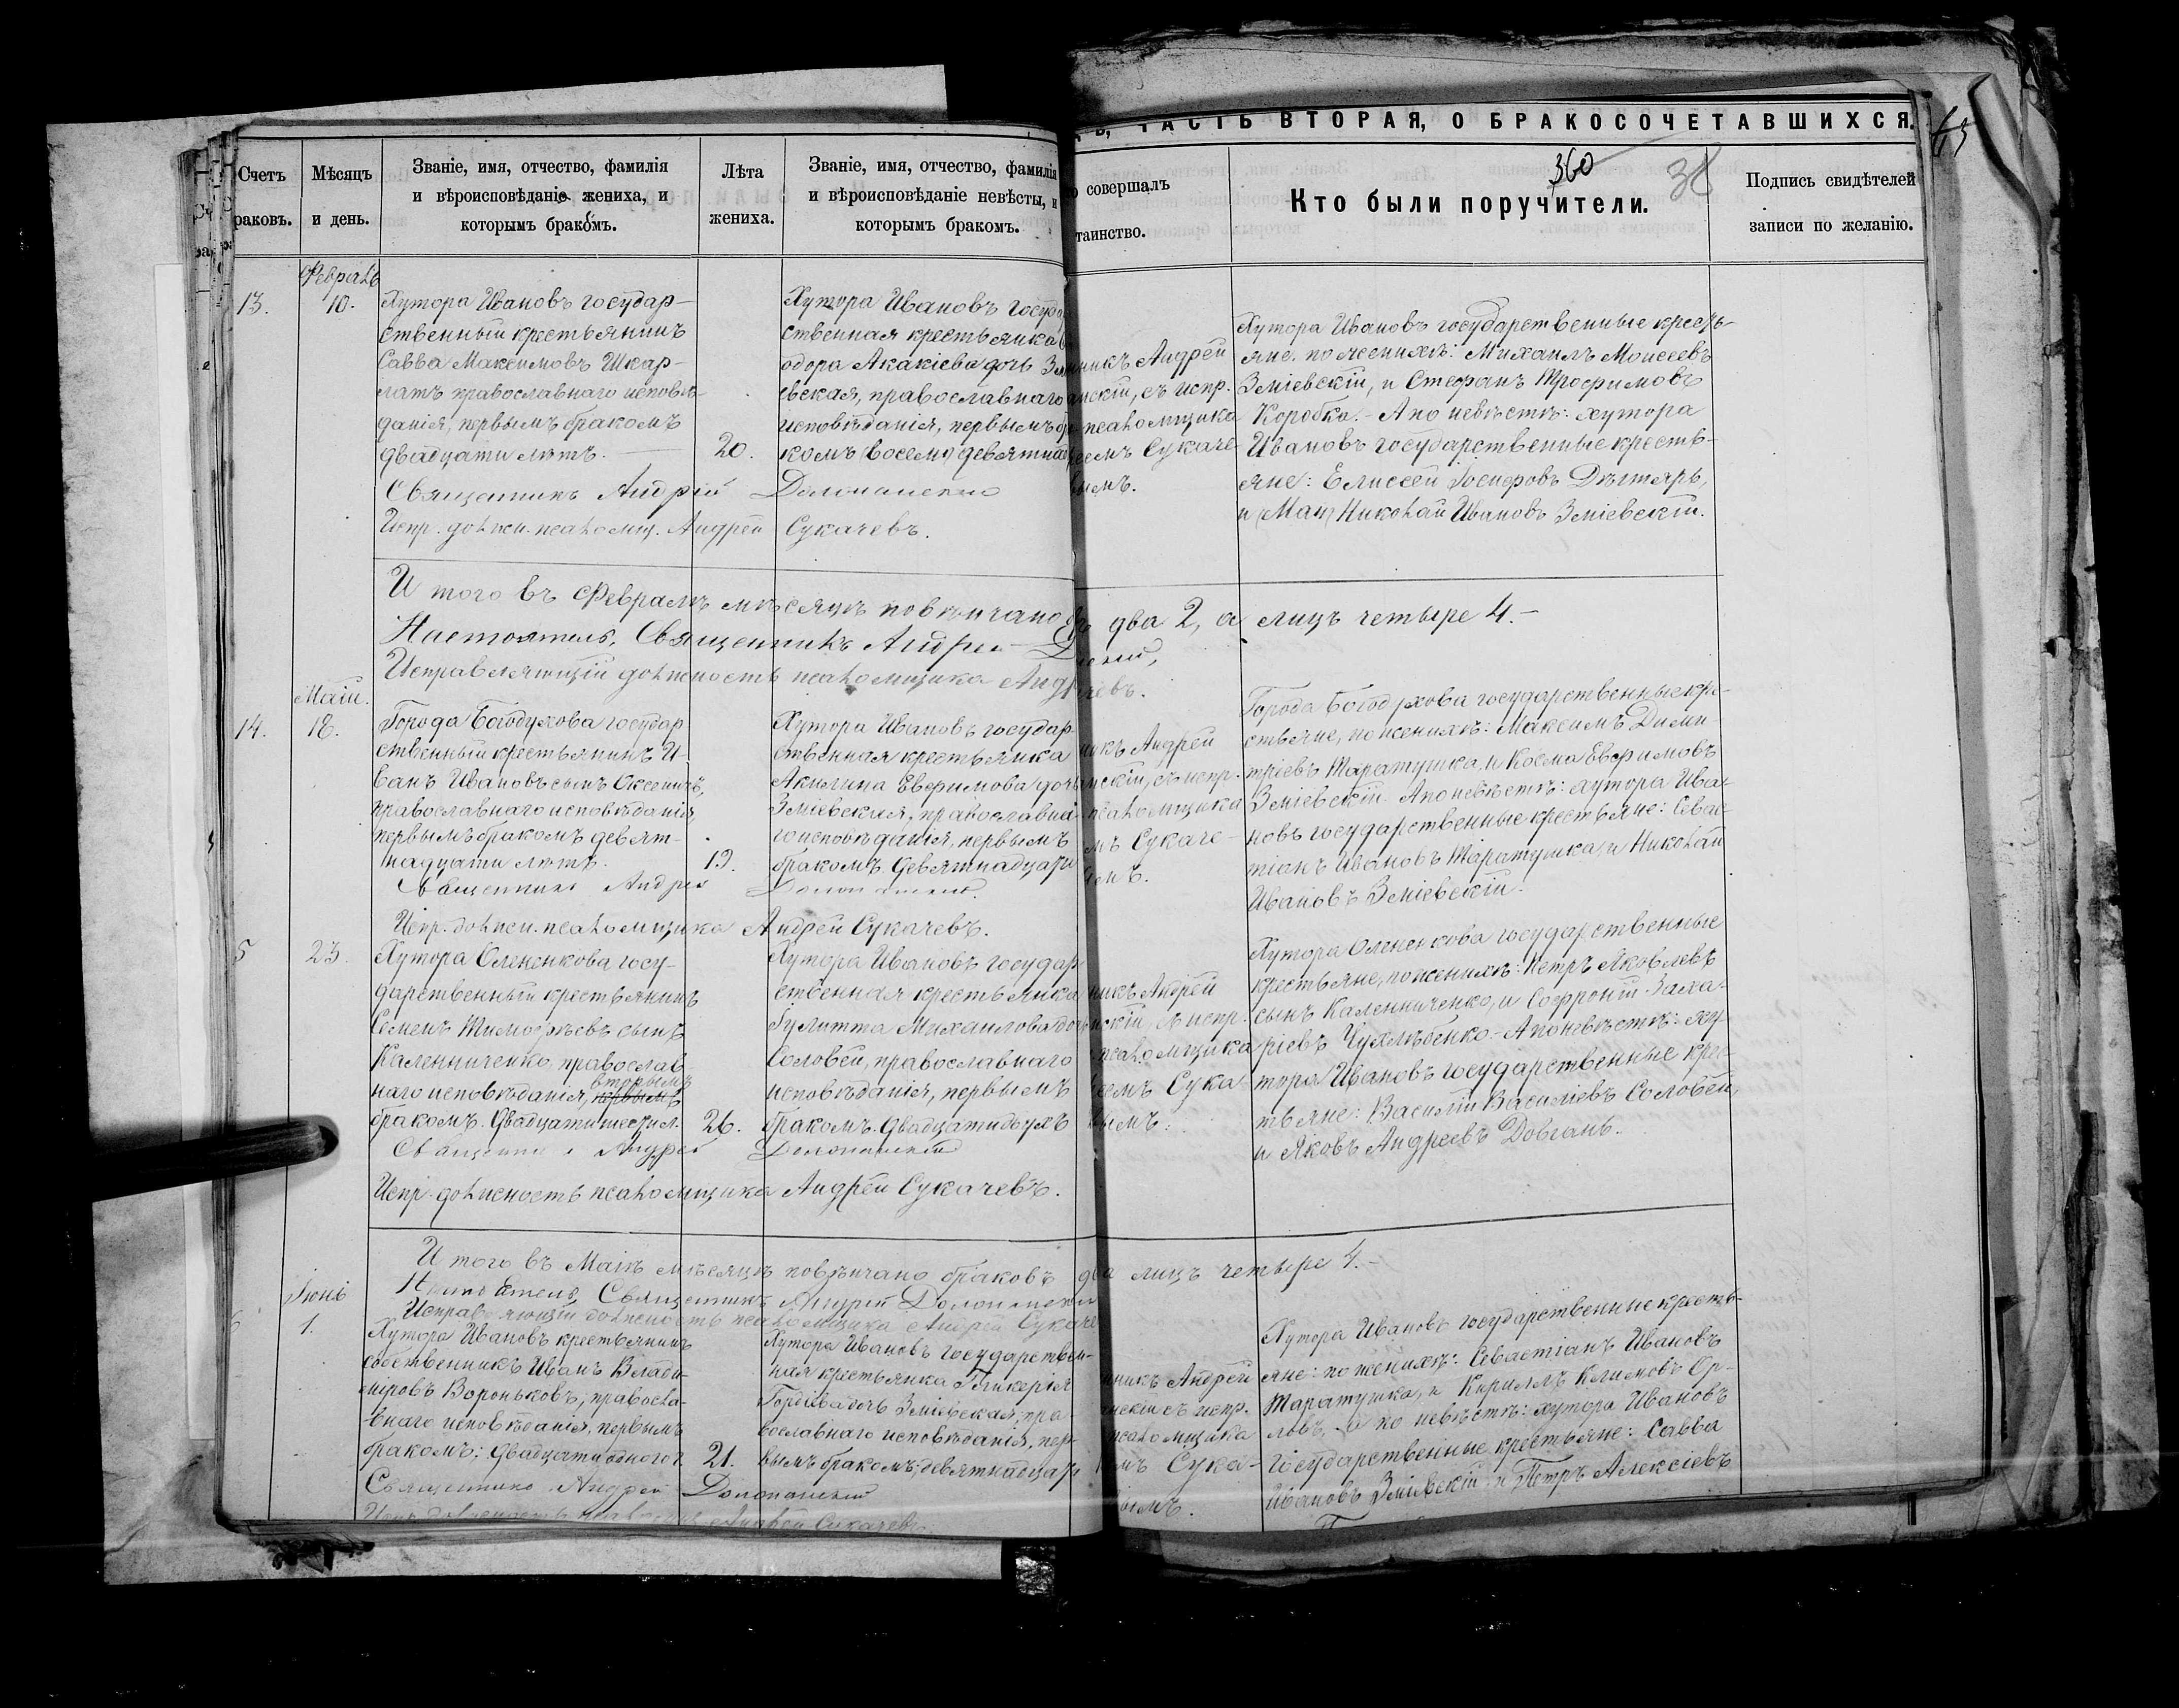 Ъ, ЧАСТЬ ВТОРАЯ, О БРАКОСОЧЕТАВШИХСЯ.
360
Счетъ
раковъ.
Мѣсяцъ
и день.
Званіе, имя, отчество, фамилія
и вѣроисповѣданіе жениха, и
которымъ бракомъ.
Лѣта
жениха.
Званіе, имя, отчество, фамилія
и вѣроисповѣданіе невѣсты, и
которымъ бракомъ.
совершалъ
таинство.
Кто были поручители.
Подпись свидѣтелей
записи по желанію.
Февраль
13.
10.
Хутора Ивановъ государ-
ственный крестьянинъ
Савва Максимовъ Шкар-
латъ православнаго исповѣ-
данія, первымъ бракомъ
двадцати лѣтъ.
20.
Хутора Ивановъ госуд
ственная крестьянка
одора Акакіева дочь Змі
евская, православнаго
исповѣданія, первымъ бра
комъ (восемь) девятнад
никъ Андрей
нскій, съ испр.
псаломщика
еемъ Сукаче-
вымъ.
Хутора Ивановъ государственные кресть-
яне. по женихѣ: Михаилъ Моисеевъ
Зміевскій, и Стефанъ Трофимовъ
Коробка. - А по невѣстѣ: хутора
Ивановъ государственные кресть-
яне: Елиссей Іосифовъ Дѣгтярь,
и (Мат) Николай Ивановъ Зміевскій.
Священникъ Андрей
Испр. должн. псаломщ. Андрей Сукачевъ.
И того въ Февралѣ мѣсяцѣ повѣнчано два 2, а лицъ четыре 4. -
Настоятель, Священникъ Андрей
Исправляющій должность псаломщика Андр чевъ.
Маій.
14.
18.
Города Богодухова государ
ственный крестьянинъ И-
ванъ Ивановъ сынъ Оксенинъ,
православнаго исповѣданія
первымъ бракомъ девят-
надцати лѣтъ.
19.
Хутора Ивановъ государ-
ственная крестьянка
Акилина Евфимова дочь
Зміевская, православна-
го исповѣданія, первымъ
бракомъ. Девятнадцати
никъ Андрей
нскій, съ испр.
псаломщика
мъ Сукаче-
емъ.
Города Богодухова государственные кре-
стьяне, по женихѣ: Максимъ Дими-
тріевъ Таратушка, и Косма Евфимовъ
Зміевскій. А по невѣстѣ: хутора Ива-
новъ государственные крестьяне: Севас-
тіанъ Ивановъ Таратушка, и Николай
Ивановъ Зміевскій.
Священникъ Андрей
Испр. должн. псаломщика Андрей Сукачевъ.
5
23.
Хутора Олененкова госу-
дарственный крестьянинъ
Семенъ Тимофѣевъ сынъ
Каленниченко, православ
наго исповѣданія, вторымъ
бракомъ. Двадцати шести л.
26.
Хутора Ивановъ государ
ственная крестьянка
Іулитта Михаилова дочь
Соловей, православнаго
исповѣданія, первымъ
бракомъ. Двадцати двухъ
никъ Андрей
нскій, съ испр.
псаломщика
еемъ Сука-
вымъ.
Хутора Олененкова государственные
крестьяне, по женихѣ: Петръ Яковлевъ
сынъ Каленниченко, и Софроній Заха-
ріевъ Чухлѣбенко. - А по невѣстѣ: ху-
тора Ивановъ государственные крес-
тьяне: Василій Василіевъ Соловей,
и Яковъ Андреевъ Довгань.
Священникъ Андрей
Испр. должность псаломщика Андрей Сукачевъ.
И того въ Маіѣ мѣсяцѣ повѣнчано браковъ два лицъ четыре 4. -
Священникъ Андрей
Исправляющій должность псаломщика Андрей Сукаче
Іюнь
1.
Хутора Ивановъ крестьянинъ
собственникъ Иванъ Влади-
міровъ Вороньковъ, правосла-
внаго исповѣданія, первымъ
бракомъ; двадцати одного г.
21.
Хутора Ивановъ государствен-
ная крестьянка Гликерія
Гордіева дочь Зміевская, пра-
вославнаго исповѣданія, пер-
вымъ бракомъ; девятнадцати
никъ Андрей
нскій съ испр.
псаломщика
мъ Сука-
вымъ.
Хутора Ивановъ государственные кресть-
яне: по женихѣ: Севастіанъ Ивановъ
Таратушка, и Кириллъ Климовъ Ор-
ловъ, а по невѣстѣ: хутора Ивановъ
государственные крестьяне: Савва
Ивановъ Зміевскій, и Петръ Алексіевъ
Священникъ Андрей
Андрей Сукачевъ.